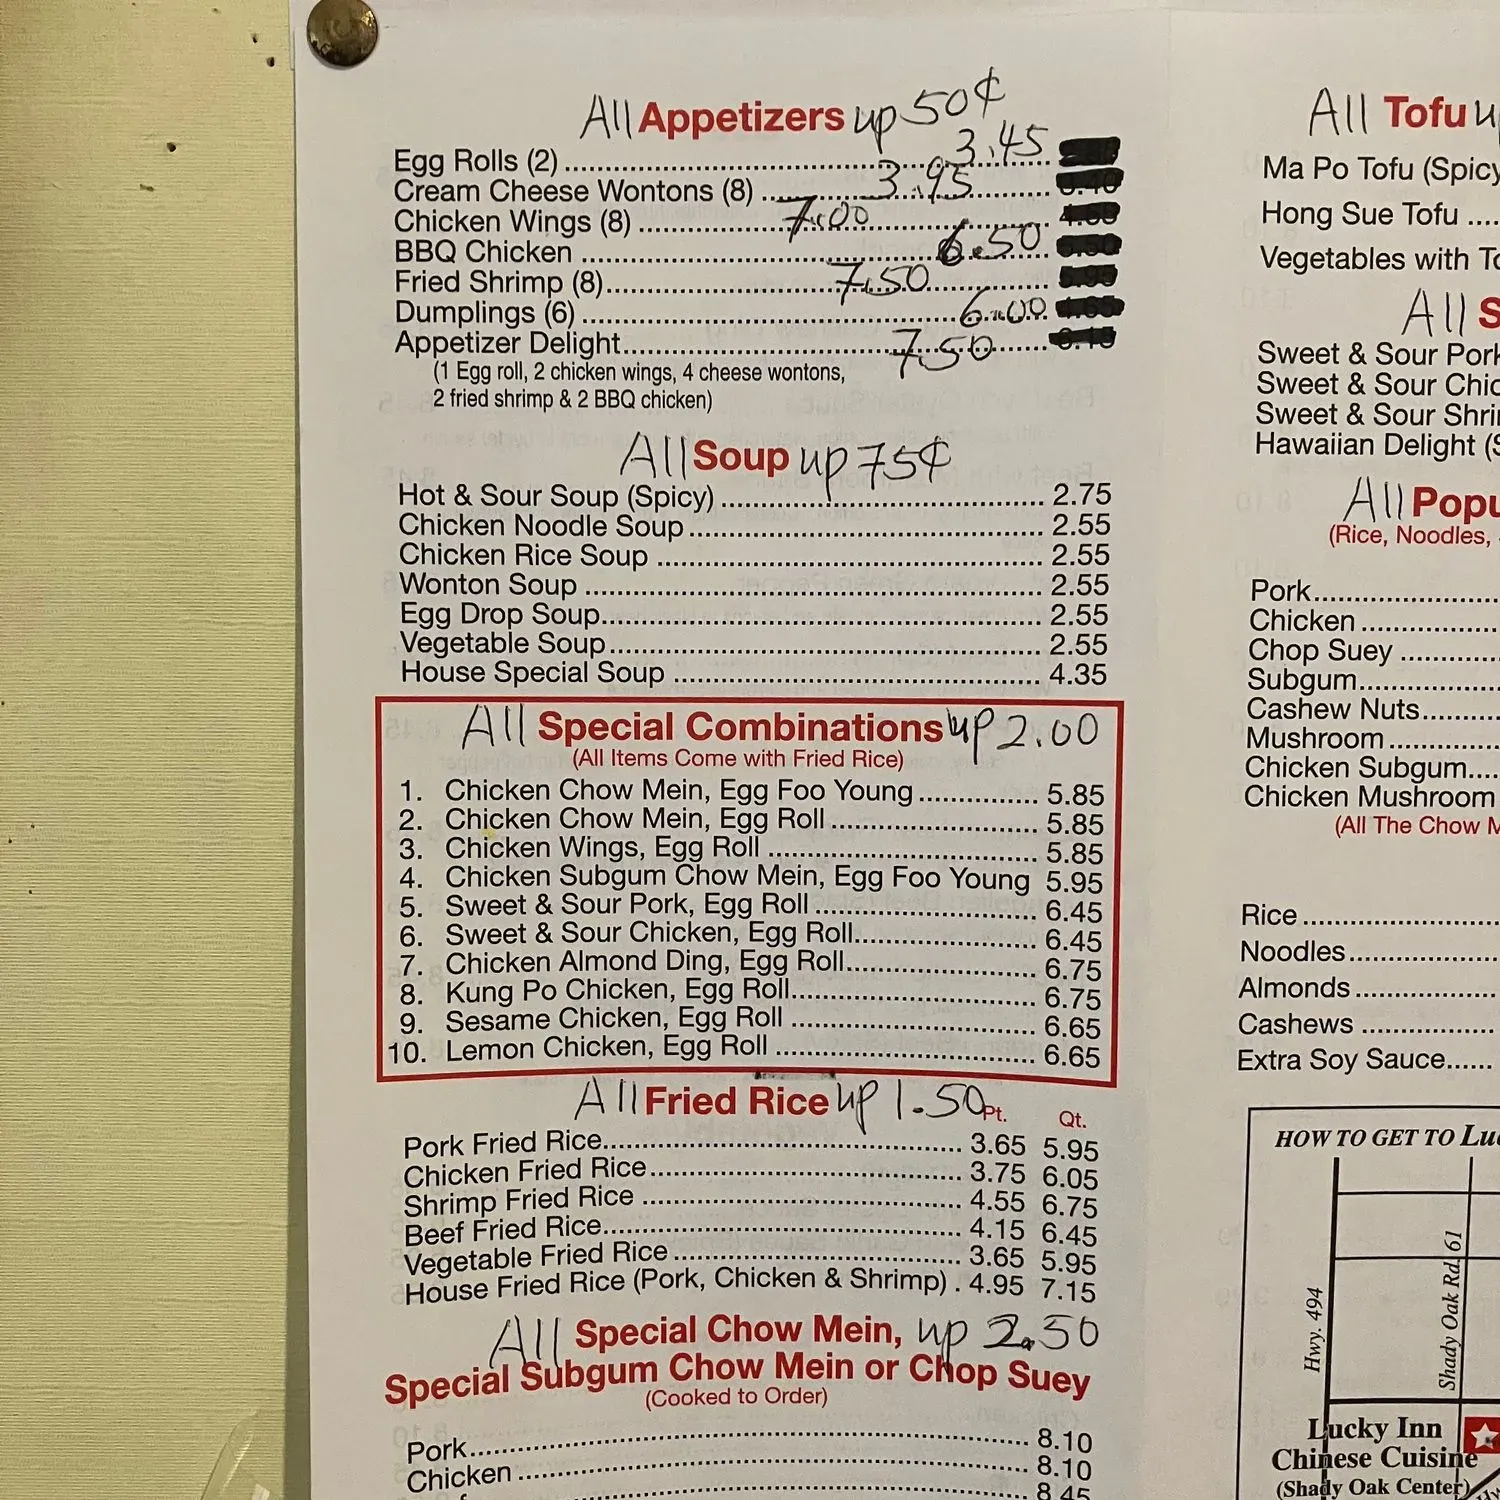 All Appetizers up 50¢
Egg Rolls (2) 3.45
Cream Cheese Wontons (8) 3.95
Chicken Wings (8) 7.00
BBQ Chicken 6.50
Fried Shrimp (8) 7.50
Dumplings (6) 6.00
Appetizer Delight 7.50
(1 Egg roll, 2 chicken wings, 4 cheese wontons,
2 fried shrimp & 2 BBQ chicken)
All Soup up 75¢
Hot & Sour Soup (Spicy) 2.75
Chicken Noodle Soup 2.55
Chicken Rice Soup 2.55
Wonton Soup 2.55
Egg Drop Soup 2.55
Vegetable Soup 2.55
House Special Soup 4.35
All Special Combinations up 2.00
(All Items Come with Fried Rice)
1. Chicken Chow Mein, Egg Foo Young 5.85
2. Chicken Chow Mein, Egg Roll 5.85
3. Chicken Wings, Egg Roll 5.85
4. Chicken Subgum Chow Mein, Egg Foo Young 5.95
5. Sweet & Sour Pork, Egg Roll 6.45
6. Sweet & Sour Chicken, Egg Roll 6.45
7. Chicken Almond Ding, Egg Roll 6.75
8. Kung Po Chicken, Egg Roll 6.75
9. Sesame Chicken, Egg Roll 6.65
10. Lemon Chicken, Egg Roll 6.65
All Fried Rice up 1.50
Pt. Qt.
Pork Fried Rice 3.65 5.95
Chicken Fried Rice 3.75 6.05
Shrimp Fried Rice 4.55 6.75
Beef Fried Rice 4.15 6.45
Vegetable Fried Rice 3.65 5.95
House Fried Rice (Pork, Chicken & Shrimp) 4.95 7.15
All Special Chow Mein, up 2.50
Special Subgum Chow Mein or Chop Suey
(Cooked to Order)
Pork 8.10
Chicken 8.10
8.45
All Tofu
Ma Po Tofu (Spicy
Hong Sue Tofu
Vegetables with
All S
Sweet & Sour Pork
Sweet & Sour Chic
Sweet & Sour Shri
Hawaiian Delight (S
All Popu
(Rice, Noodles,
Pork
Chicken
Chop Suey
Subgum
Cashew Nuts
Mushroom
Chicken Subgum
Chicken Mushroom
(All The Chow M
Rice
Noodles
Almonds
Cashews
Extra Soy Sauce
HOW TO GET TO Luc
Hwy. 494
Shady Oak Rd. 61
Lucky Inn
Chinese Cuisine
(Shady Oak Center)